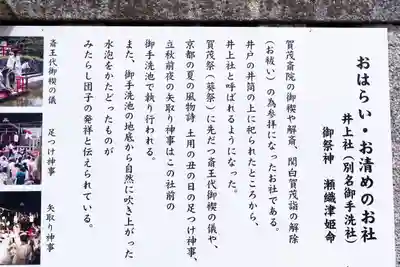 おはらい・お清めのお社
井上社（別名御手洗社）
御祭神　瀬織津姫命
賀茂斎院の御禊や解斎、関白賀茂詣の解除
（お祓い）の為参拝になったお社である。
井戸の井筒の上に祀られたところから、
井上社と呼ばれるようになった。
賀茂祭（葵祭）に先だつ斎王代御禊の儀や、
京都の夏の風物詩 土用の丑の日の足つけ神事、
立秋前夜の矢取り神事はこの社前の
御手洗池で執り行われる。
また、御手洗池の池底から自然に吹き上がった
水泡をかたどったものが
みたらし団子の発祥と伝えられている。
斎王代御禊の儀
足つけ神事
矢取り神事